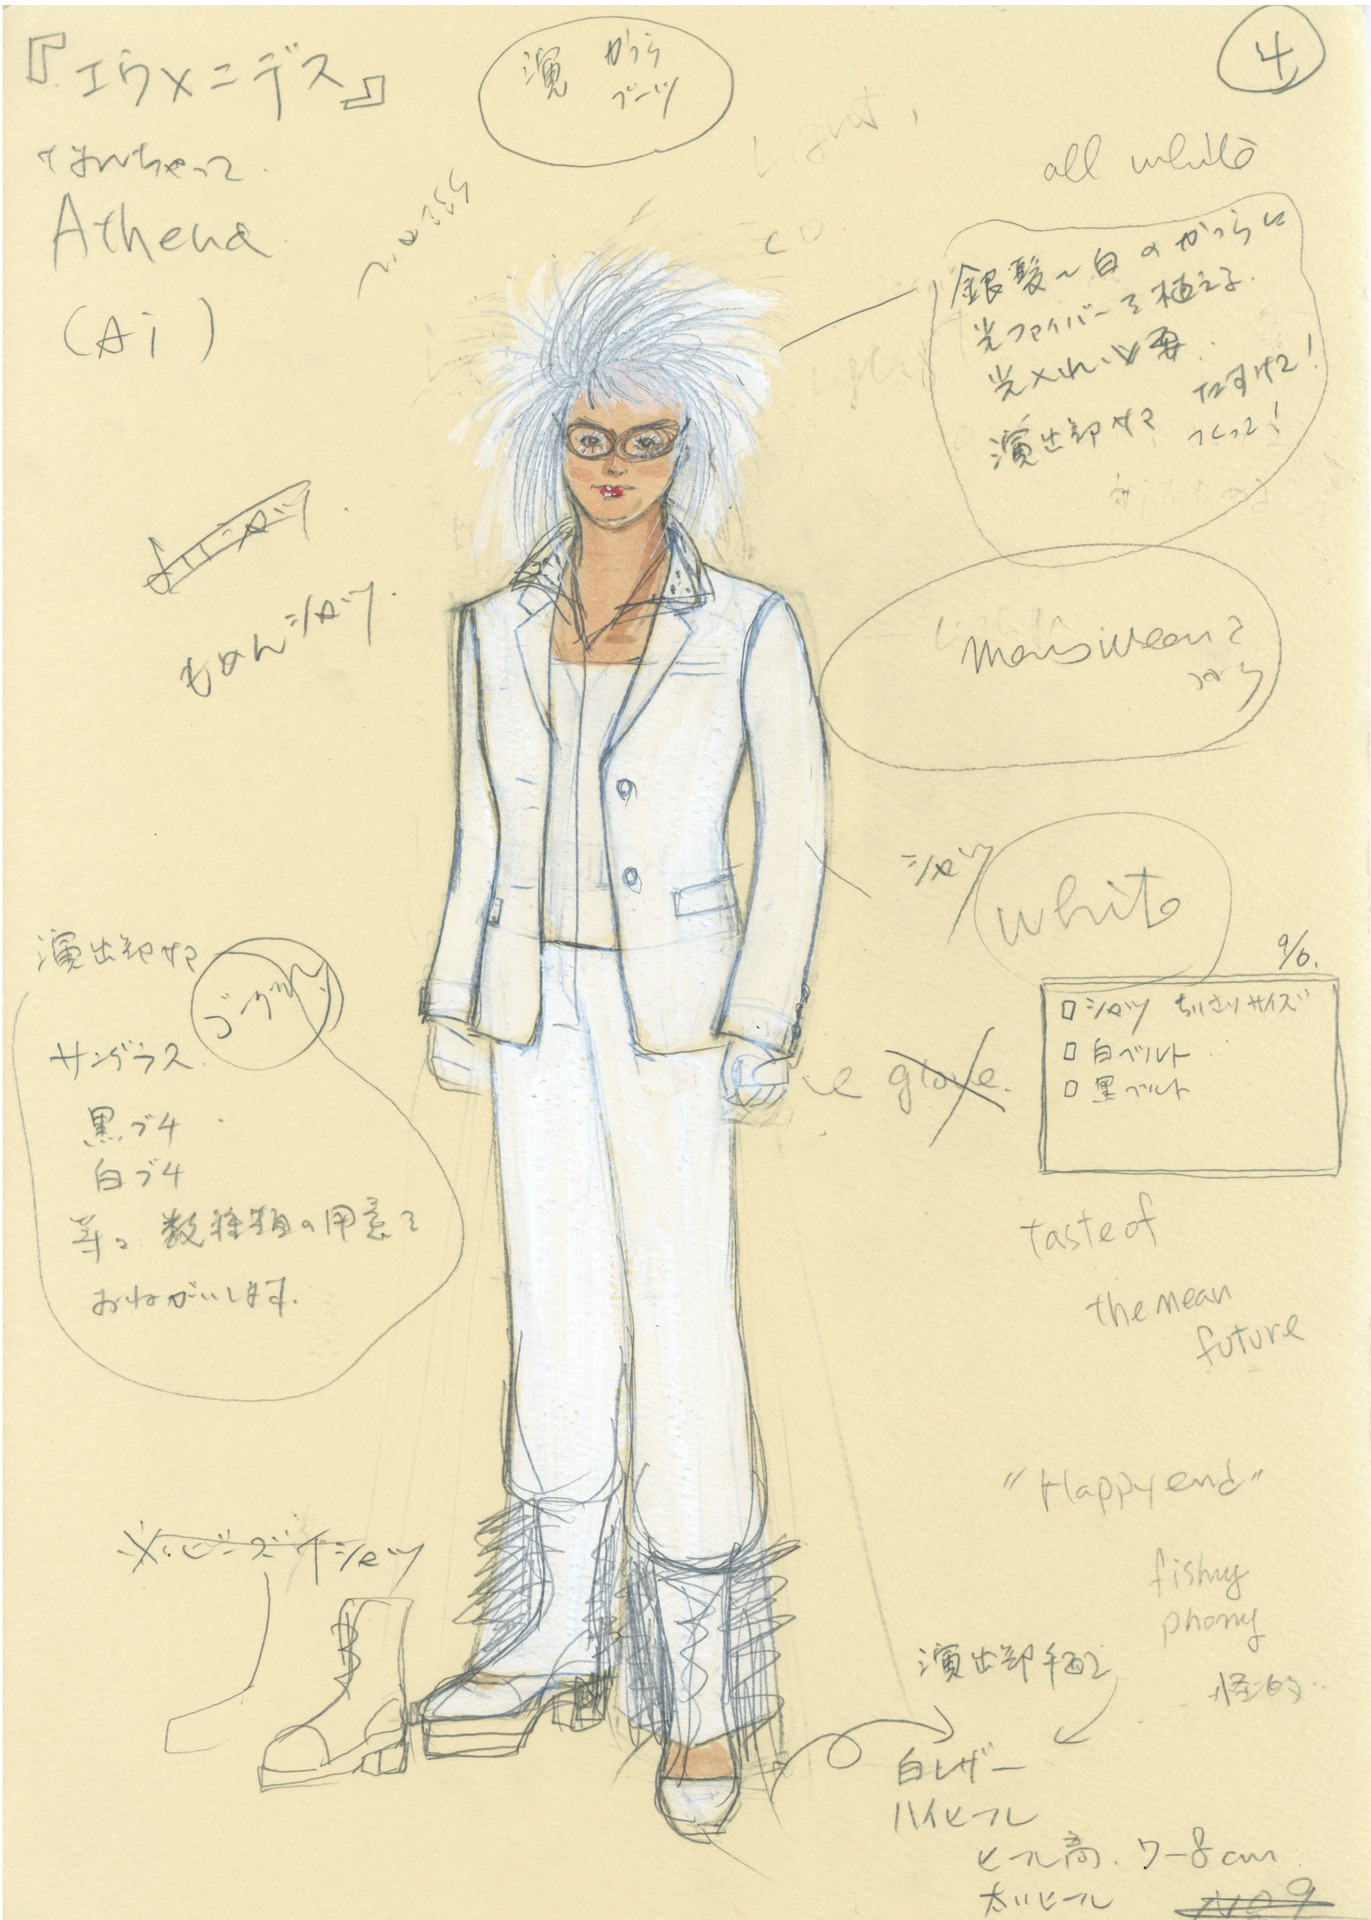 『エウメニデス』
なんちゃって
Athena
(Ai)
演 かつら
ブーツ
4
Light,
all white
銀髪〜白のかつらに
光ファイバーを植える.
光入れ必要.
演出部サマ たすけて!
つくって!
もめんシャツ.
シャツ
white
9/6.
□シャツ ちいさいサイズ
□白ベルト
□黒ベルト
glove.
演出部サマ
ゴーグル
サングラス
黒ブチ
白ブチ
等の数種類の用意を
おねがいします.
taste of
the mean
future
"Happy end"
fishy
phony
演出部手配
白レザー
ハイヒール
ヒール高. 7-8cm
太いヒール
No 9